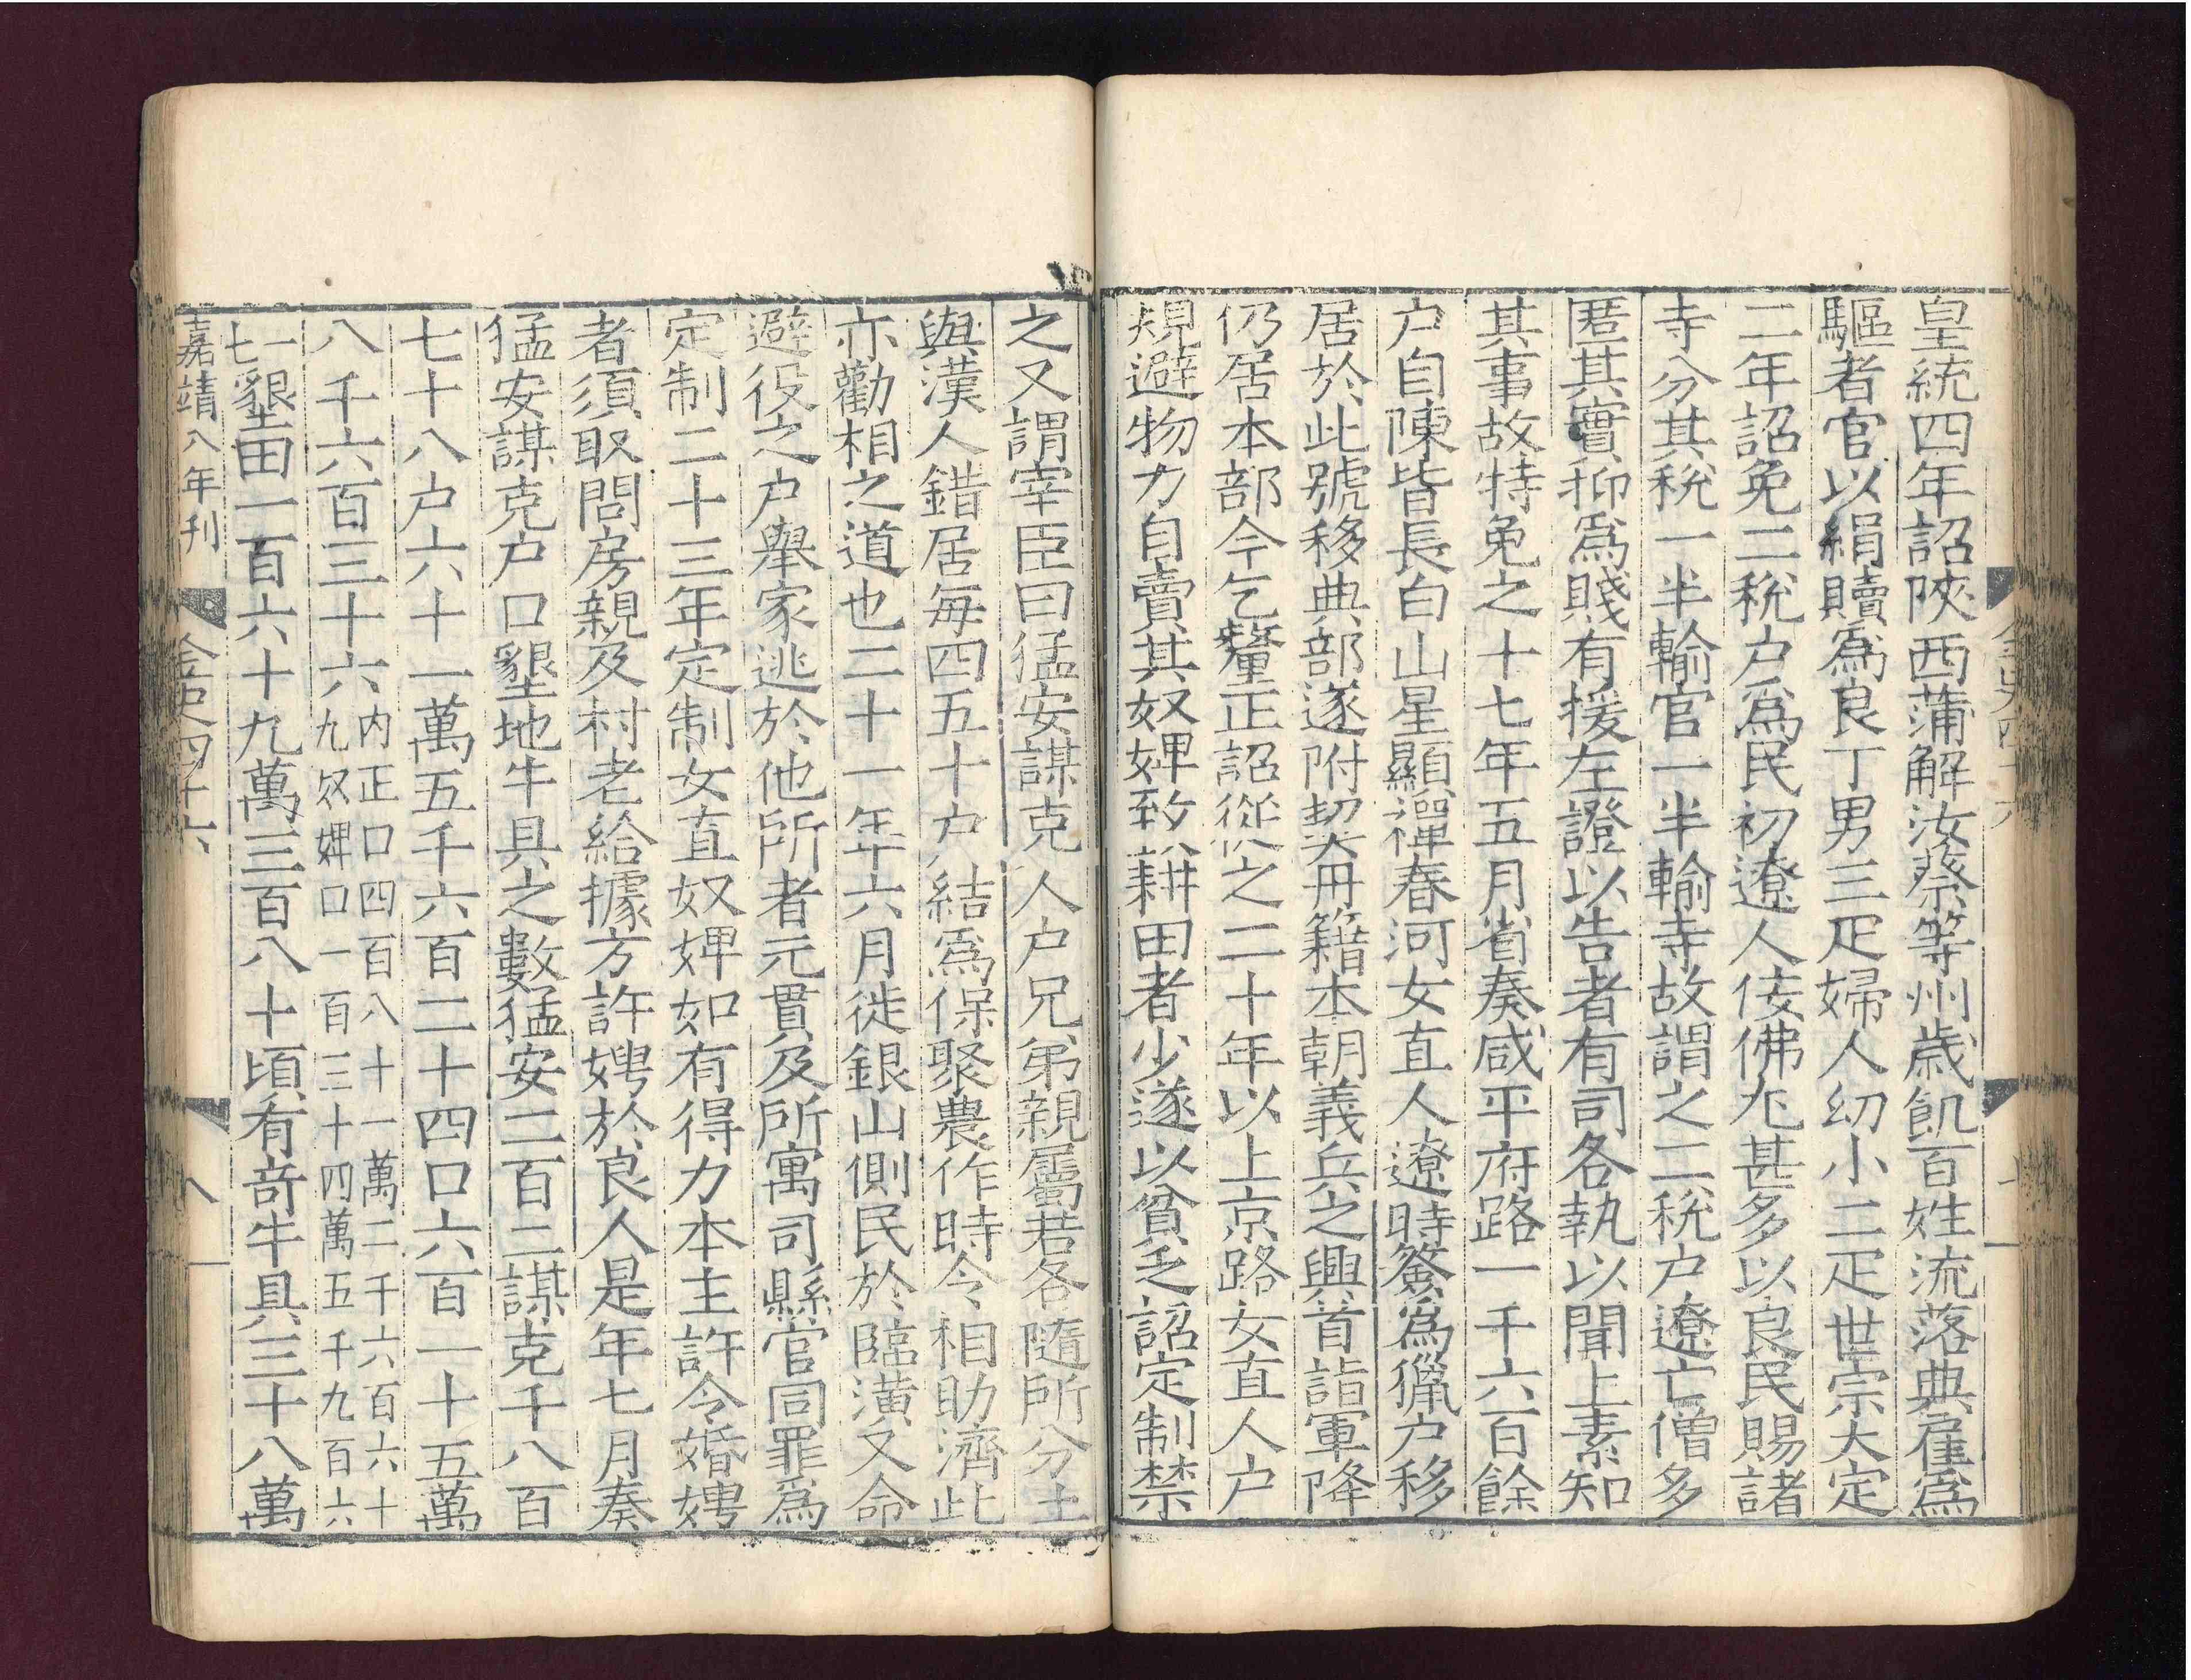 皇統四年詔陝西蒲解汝蔡等州歲飢百姓流落典雇爲
驅者官以絹贖爲良丁男三疋婦人幼小二疋世宗大定
二年詔免二稅户爲民初遼人佞佛尤甚多以良民賜諸
寺分其稅一半輸官一半輸寺故謂之二稅户遼亡僧多
匿其實抑爲賤有援左證以告者有司各執以聞上素知
其事故特免之十七年五月省奏咸平府路一千六百餘
户自陳皆長白山星顯禪春河女直人遼時簽爲獵户移
居於此號移典部遂附契丹籍本朝義兵之興首詣軍降
仍居本部今乞釐正詔從之二十年以上京路女直人户
規避物力自賣其奴婢致耕田者少遂以貧乏詔定制禁
之又謂宰臣曰猛安謀克人户兄弟親屬若各隨所分土
與漢人錯居每四五十户結爲保聚農作時令相助濟此
亦勸相之道也二十一年六月徙銀山側民於臨潢又命
避役之户舉家逃於他所者元貫及所寓司縣官同罪爲
定制二十三年定制女直奴婢如有得力本主許令婚娉
者須取問房親及村老給據方許娉於良人是年七月奏
猛安謀克户口墾地牛具之數猛安二百二謀克千八百
七十八户六十一萬五千六百二十四口六百一十五萬
八千六百三十六内正口四百八十一萬二千六百六十
九奴婢口一百三十四萬五千九百六
十七墾田一百六十九萬三百八十頃有奇牛具三十八萬
嘉靖八年刊 金史四十六 八